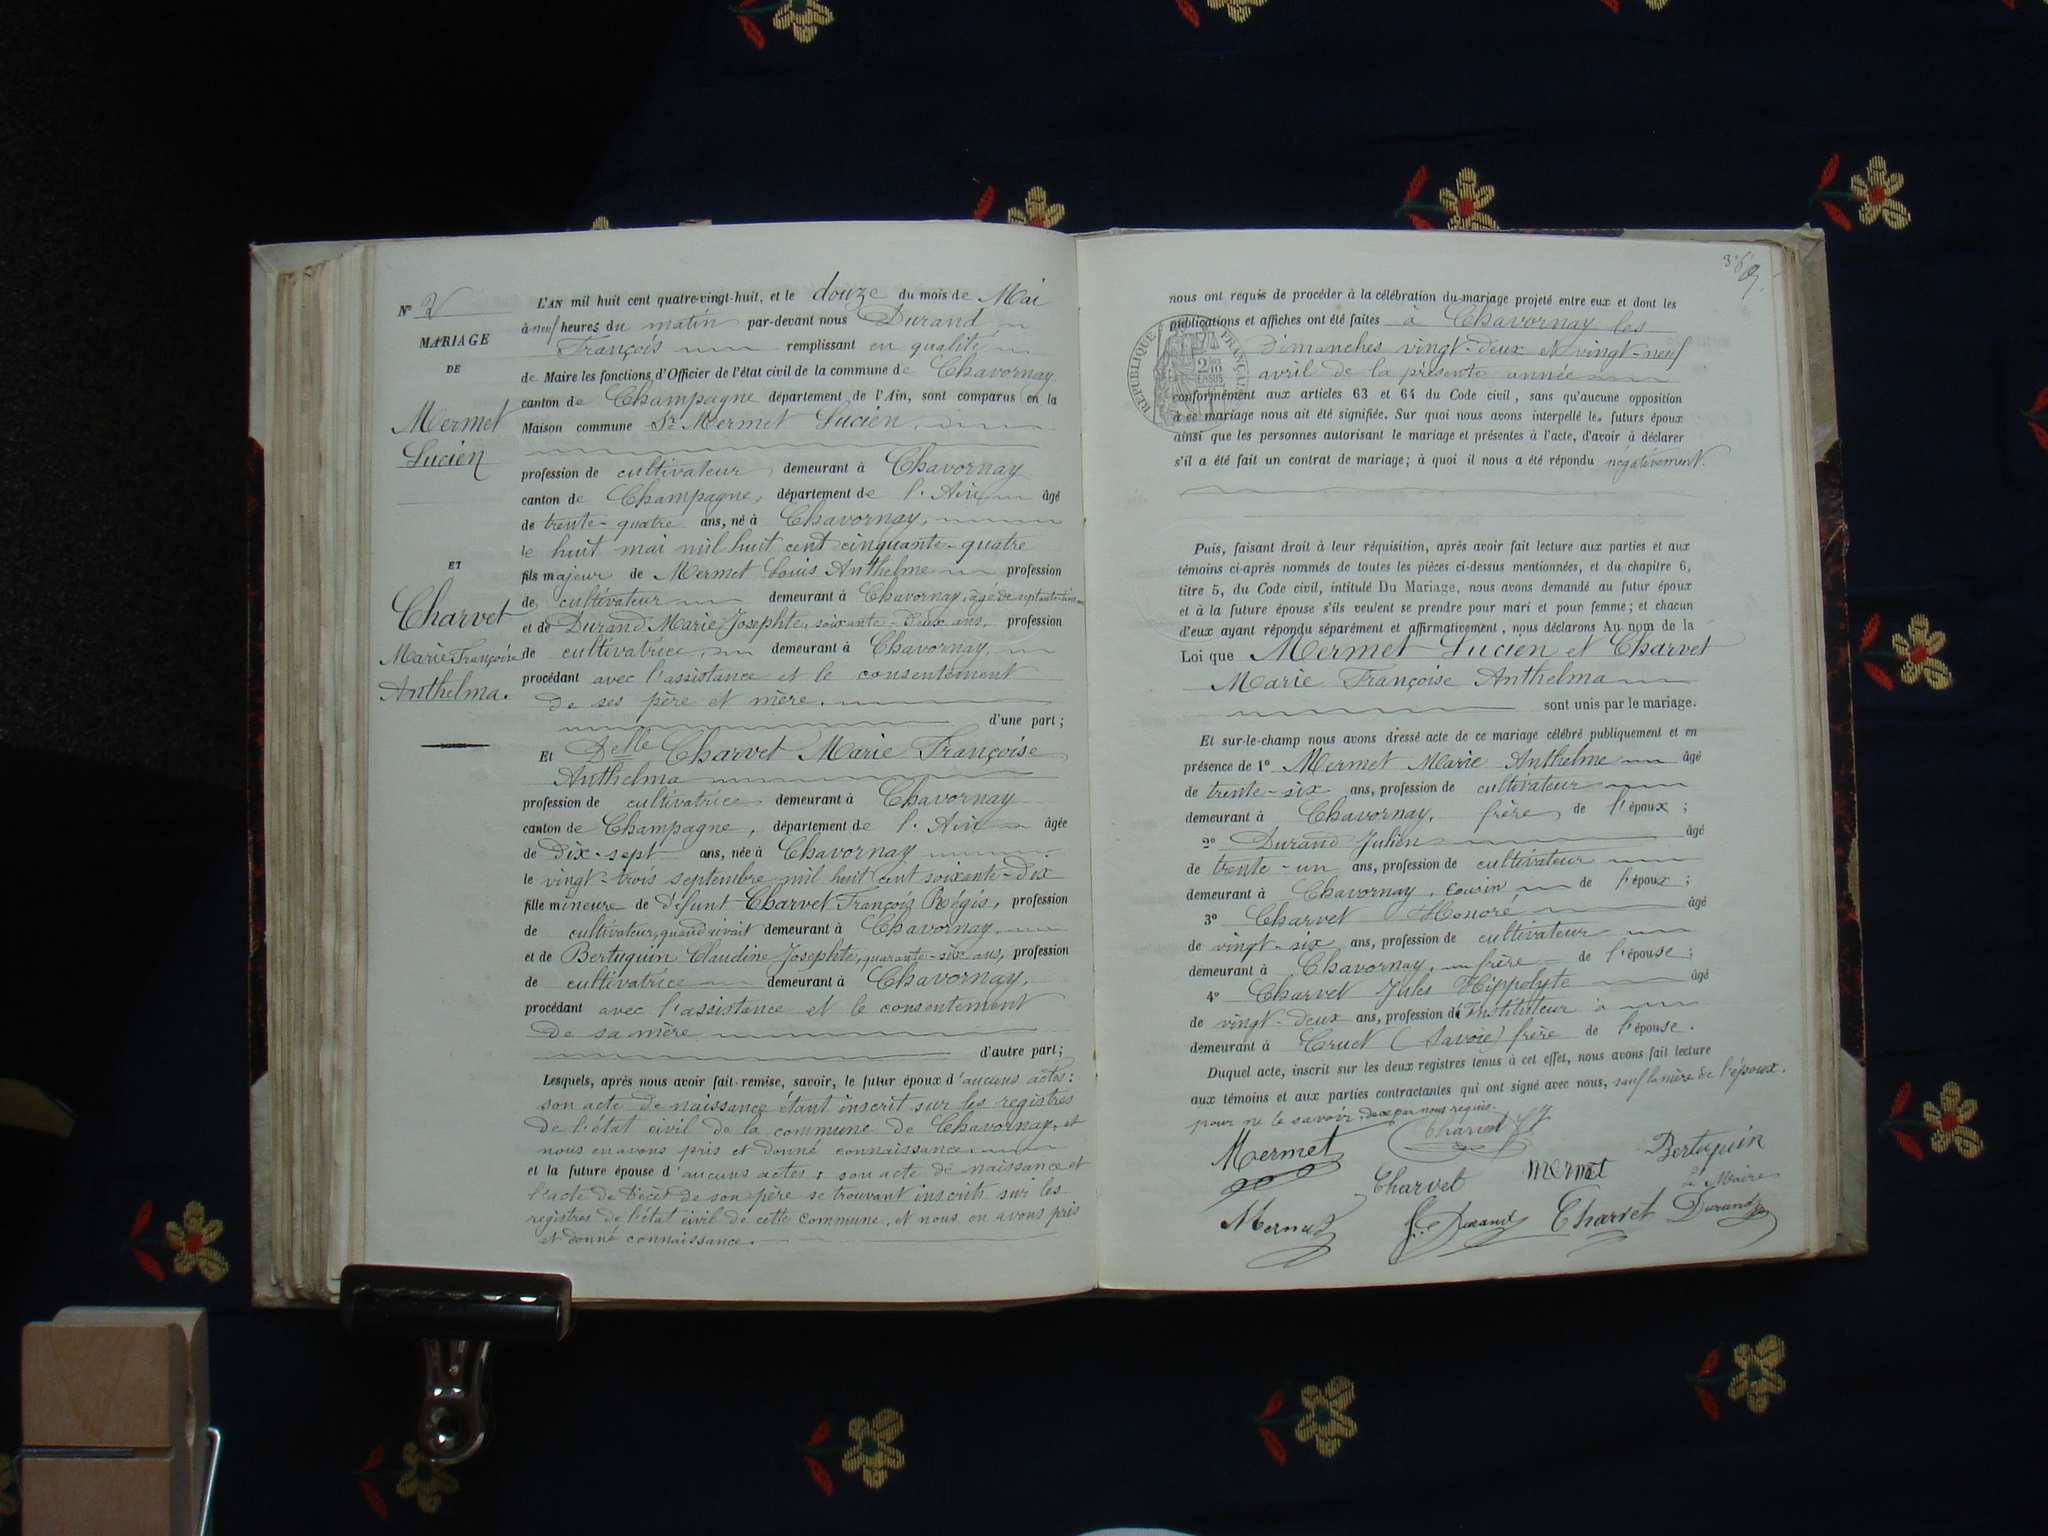 N° 2
MARIAGE
DE
Mermet
Lucien
ET
Charvet
Marie Françoise
Anthelma.
L'AN mil huit cent quatre-vingt-huit, et le douze du mois de Mai
à neuf heures du matin par-devant nous Durand
François remplissant en qualité
de Maire les fonctions d'Officier de l'état civil de la commune de Chavornay
canton de Champagne département de l'Ain, sont comparus en la
Maison commune Sr Mermet Lucien,
profession de cultivateur demeurant à Chavornay
canton de Champagne, département de l'Ain âgé
de trente-quatre ans, né à Chavornay,
le huit mai mil huit cent cinquante-quatre
fils majeur de Mermet Louis Anthelme profession
de cultivateur demeurant à Chavornay, âgé de septante
et de Durand Marie Josephte, soixante-deux ans, profession
de cultivatrice, demeurant à Chavornay,
procédant avec l'assistance et le consentement
de ses père et mère.
d'une part;
Et Delle Charvet Marie Françoise
Anthelma
profession de cultivatrice demeurant à Chavornay
canton de Champagne, département de l'Ain âgée
de dix-sept ans, née à Chavornay
le vingt-trois septembre mil huit cent soixante-dix
fille mineure de défunt Charvet François Régis, profession
de cultivateur, quand vivait demeurant à Chavornay,
et de Bertuguin Claudine Josephte, quarante-six ans, profession
de cultivatrice demeurant à Chavornay,
procédant avec l'assistance et le consentement
de sa mère
d'autre part;
Lesquels, après nous avoir fait remise, savoir, le futur époux d'aucuns actes:
son acte de naissance étant inscrit sur les registres
de l'état civil de la commune de Chavornay, et
nous en avons pris et donné connaissance
et la future épouse d'aucuns actes: son acte de naissance et
l'acte de décès de son père se trouvant inscrits sur les
registres de l'état civil de cette commune, et nous en avons pris
et donné connaissance.
nous ont requis de procéder à la célébration du mariage projeté entre eux et dont les
publications et affiches ont été faites à Chavornay les
dimanches vingt-deux et vingt-neuf
avril de la présente année
conformément aux articles 63 et 64 du Code civil, sans qu'aucune opposition
à ce mariage nous ait été signifiée. Sur quoi nous avons interpellé les futurs époux
ainsi que les personnes autorisant le mariage et présentes à l'acte, d'avoir à déclarer
s'il a été fait un contrat de mariage; à quoi il nous a été répondu négativement.
RÉPUBLIQUE FRANÇAISE
2/10
EN SUS
Puis, faisant droit à leur réquisition, après avoir fait lecture aux parties et aux
témoins ci-après nommés de toutes les pièces ci-dessus mentionnées, et du chapitre 6,
titre 5, du Code civil, intitulé Du Mariage, nous avons demandé au futur époux
et à la future épouse s'ils veulent se prendre pour mari et pour femme; et chacun
d'eux ayant répondu séparément et affirmativement, nous déclarons Au nom de la
Loi que Mermet Lucien et Charvet
Marie Françoise Anthelma
sont unis par le mariage.
Et sur-le-champ nous avons dressé acte de ce mariage célébré publiquement et en
présence de 1° Mermet Marie Anthelme âgé
de trente-six ans, profession de cultivateur
demeurant à Chavornay, frère de l'époux;
2° Durand Julien âgé
de trente-un ans, profession de cultivateur
demeurant à Chavornay, cousin de l'époux;
3° Charvet Honoré âgé
de vingt-six ans, profession de cultivateur
demeurant à Chavornay, frère de l'épouse;
4° Charvet Jules Hippolyte âgé
de vingt-deux ans, profession d'Instituteur à
demeurant à Cruet (Savoie) frère de l'épouse.
Duquel acte, inscrit sur les deux registres tenus à cet effet, nous avons fait lecture
aux témoins et aux parties contractantes qui ont signé avec nous, sauf la mère de l'époux.
pour ne le savoir, de ce par nous requis.
Mermet Charvet
Charvet Mermet Bertuguin
Mermet Durand Charvet Durand
Maire